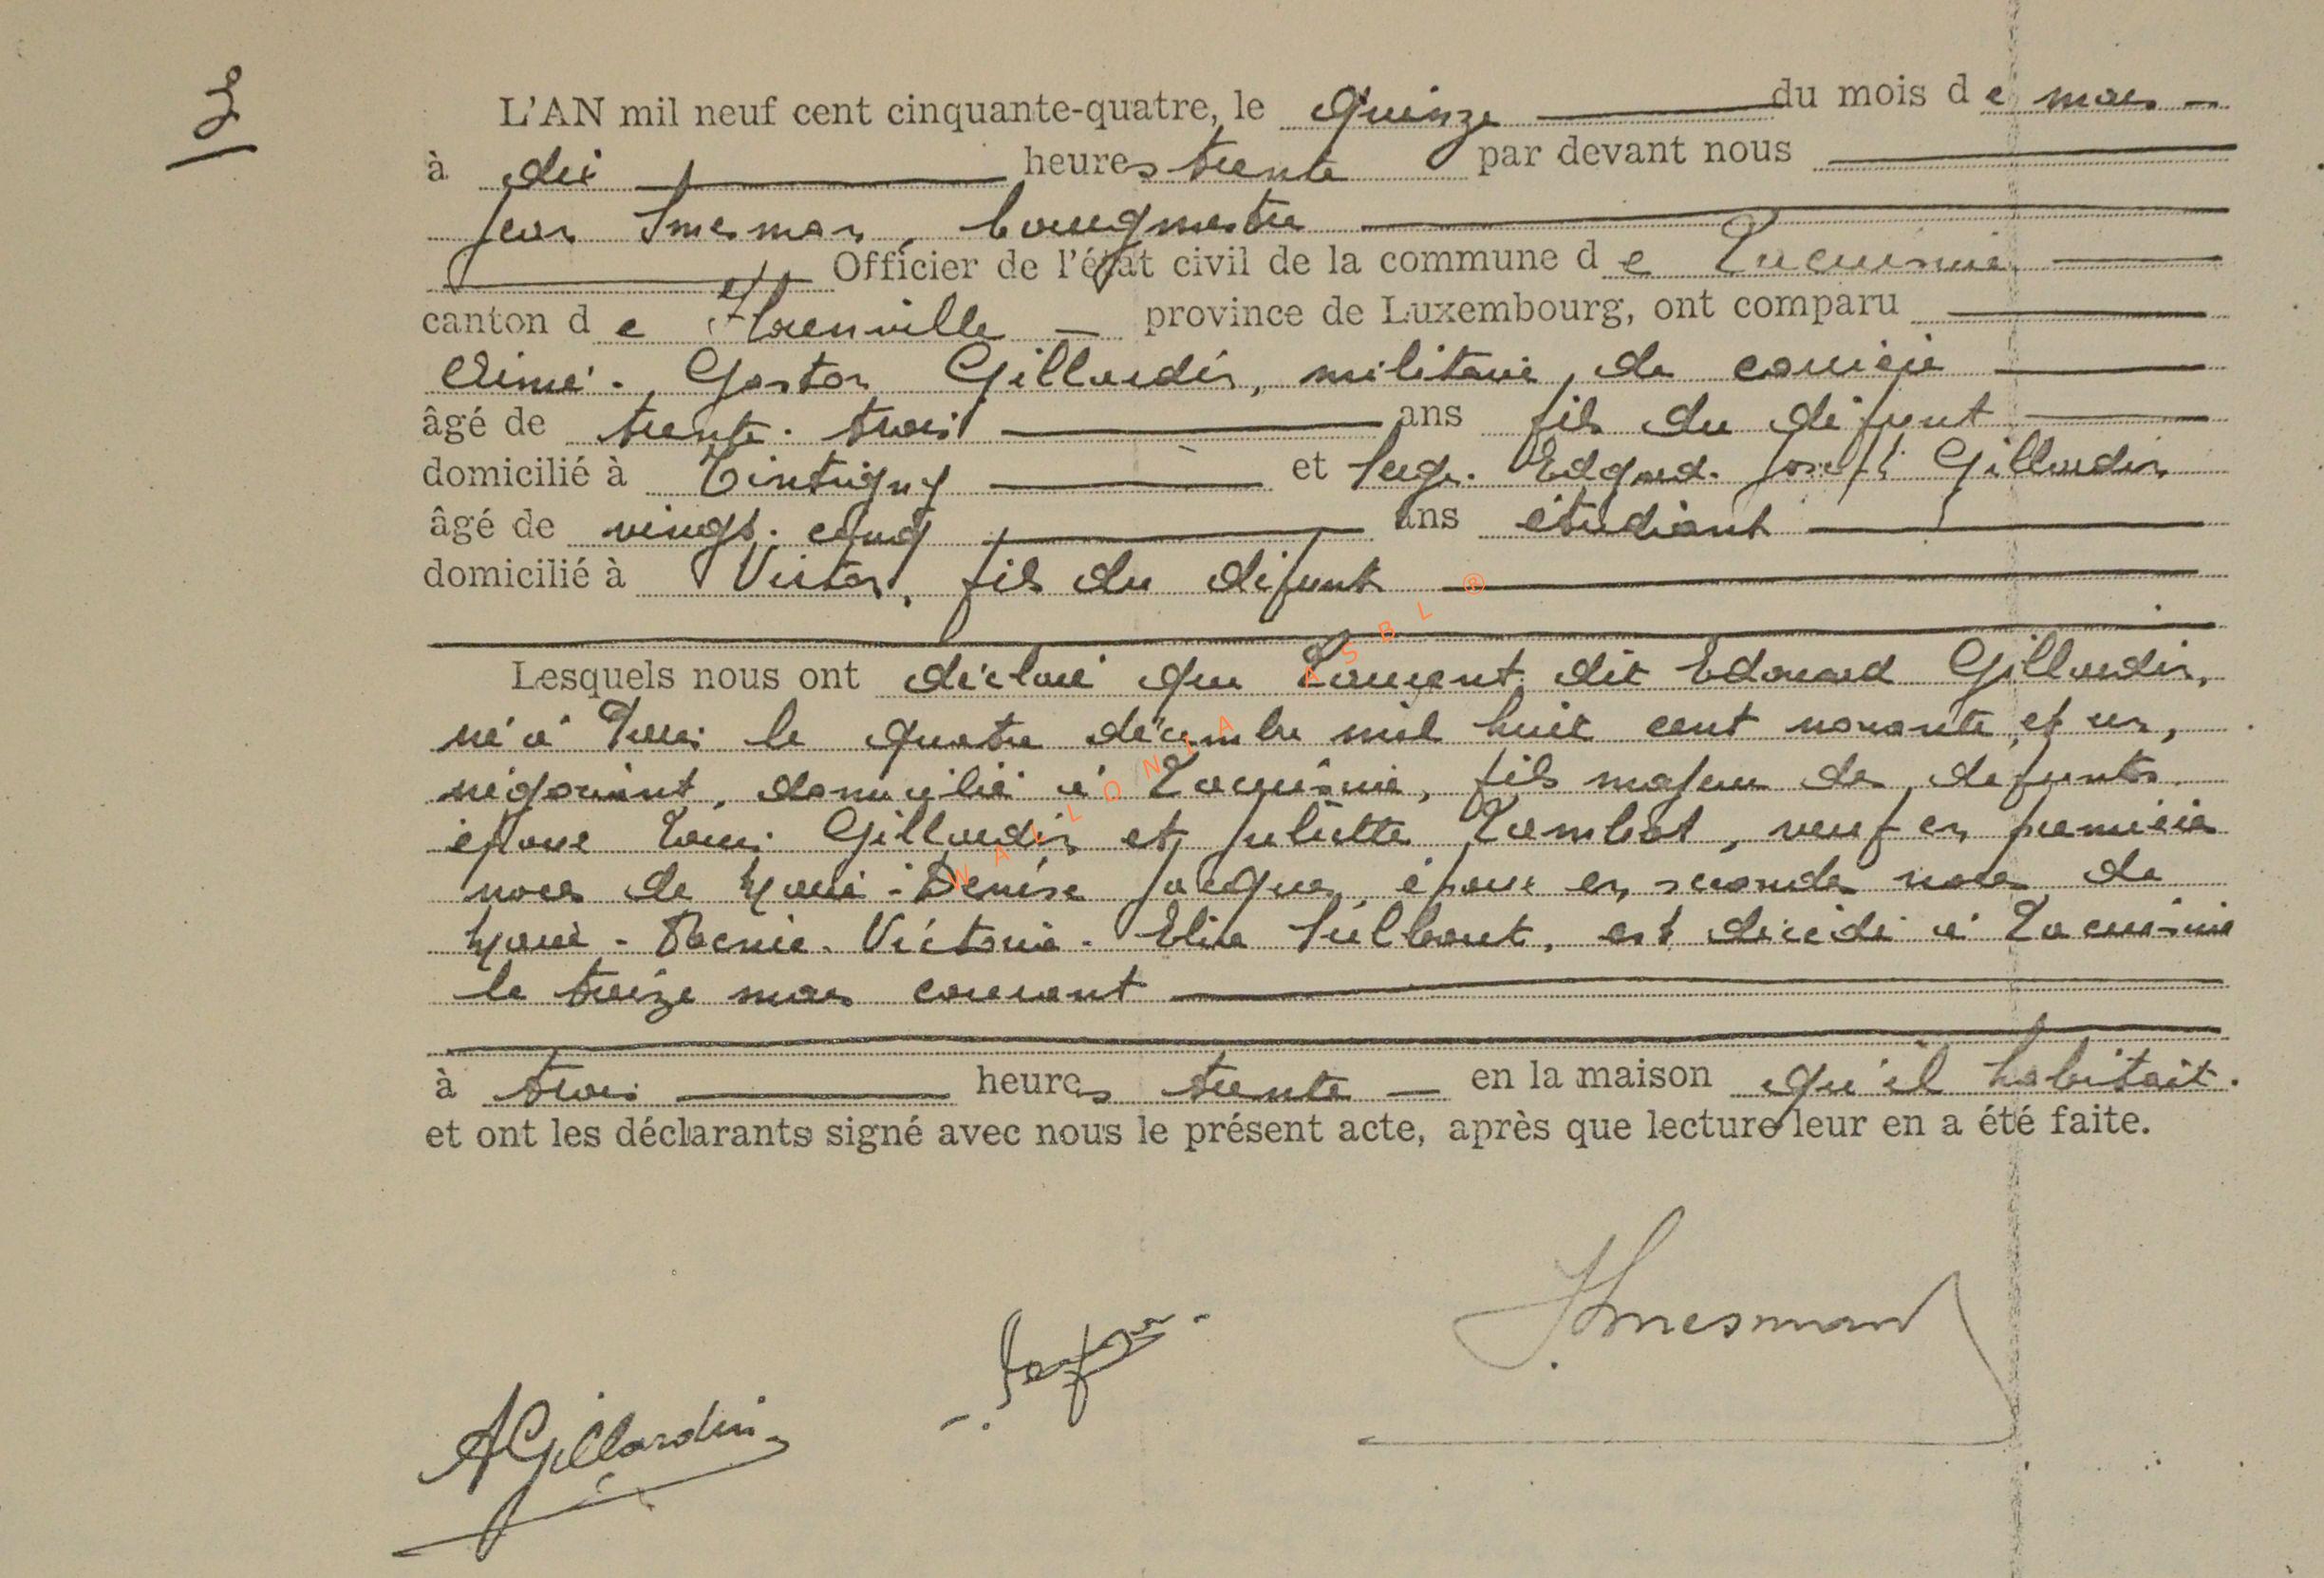 3
L'AN mil neuf cent cinquante-quatre, le quinze du mois de mars
à dix heures trente par devant nous
Jean Smesman, bourgmestre
Officier de l'état civil de la commune de Lacuisine
canton de Florenville province de Luxembourg, ont comparu
Aimé - Gaston Gillardin, militaire de carrière
âgé de trente-trois ans fils du défunt
domicilié à Tintigny et Serge - Edgard - Joseph Gillardin
âgé de vingt-cinq ans étudiant
domicilié à Virton, fils du défunt
Lesquels nous ont déclaré que Laurent dit Edouard Gillardin,
né à le quatre décembre mil huit cent nonante et un,
négociant, domicilié à Lacuisine, fils majeur des défunts
époux Louis Gillardin et Juliette Lambot, veuf en première
noces de Marie - Denise Jacques, époux en secondes noces de
Marie - Victoria - Elisa est décédé à Lacuisine
le treize mars courant
à trois heures trente en la maison qu'il habitait.
et ont les déclarants signé avec nous le présent acte, après que lecture leur en a été faite.
JSmesman
AGillardin
WALLONIA ASBL ®